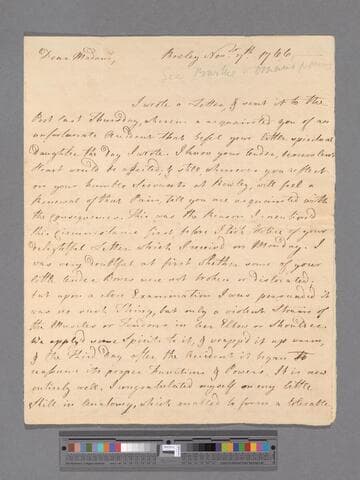 Dear Madam, Rowley Novr. 7th 1766
I wrote a Letter & sent it to the
Post last Thursday, wherein I acquainted you of an
unfortunate Accident that befel your little
Daughter the Day I wrote. I know your tender, benevolent
Heart would be affected, & still whenever you reflect
on your humble Servants at Rowley, will feel a
Renewal of that Pain, till you are acquainted with
the Consequences. This was the Reason I mentioned
this Circumstance first before I took Notice of your
delightful Letter which I received on Monday. I
was very doubtful at first whether some of your
little tender Bones were not broken or dislocated,
but upon a close Examination I was persuaded it
was no such Thing, but only a violent Strain of
the Muscles or Tendons in her Elbow or Shoulder.
We applyd some Spirits to it, & wrapped it up warm,
& the third Day after the Accident it began to
reassume its proper Functions & Powers. It is now
entirely well. I congratulated myself on my little
Skill in Anatomy, which enabled to form a tolerable